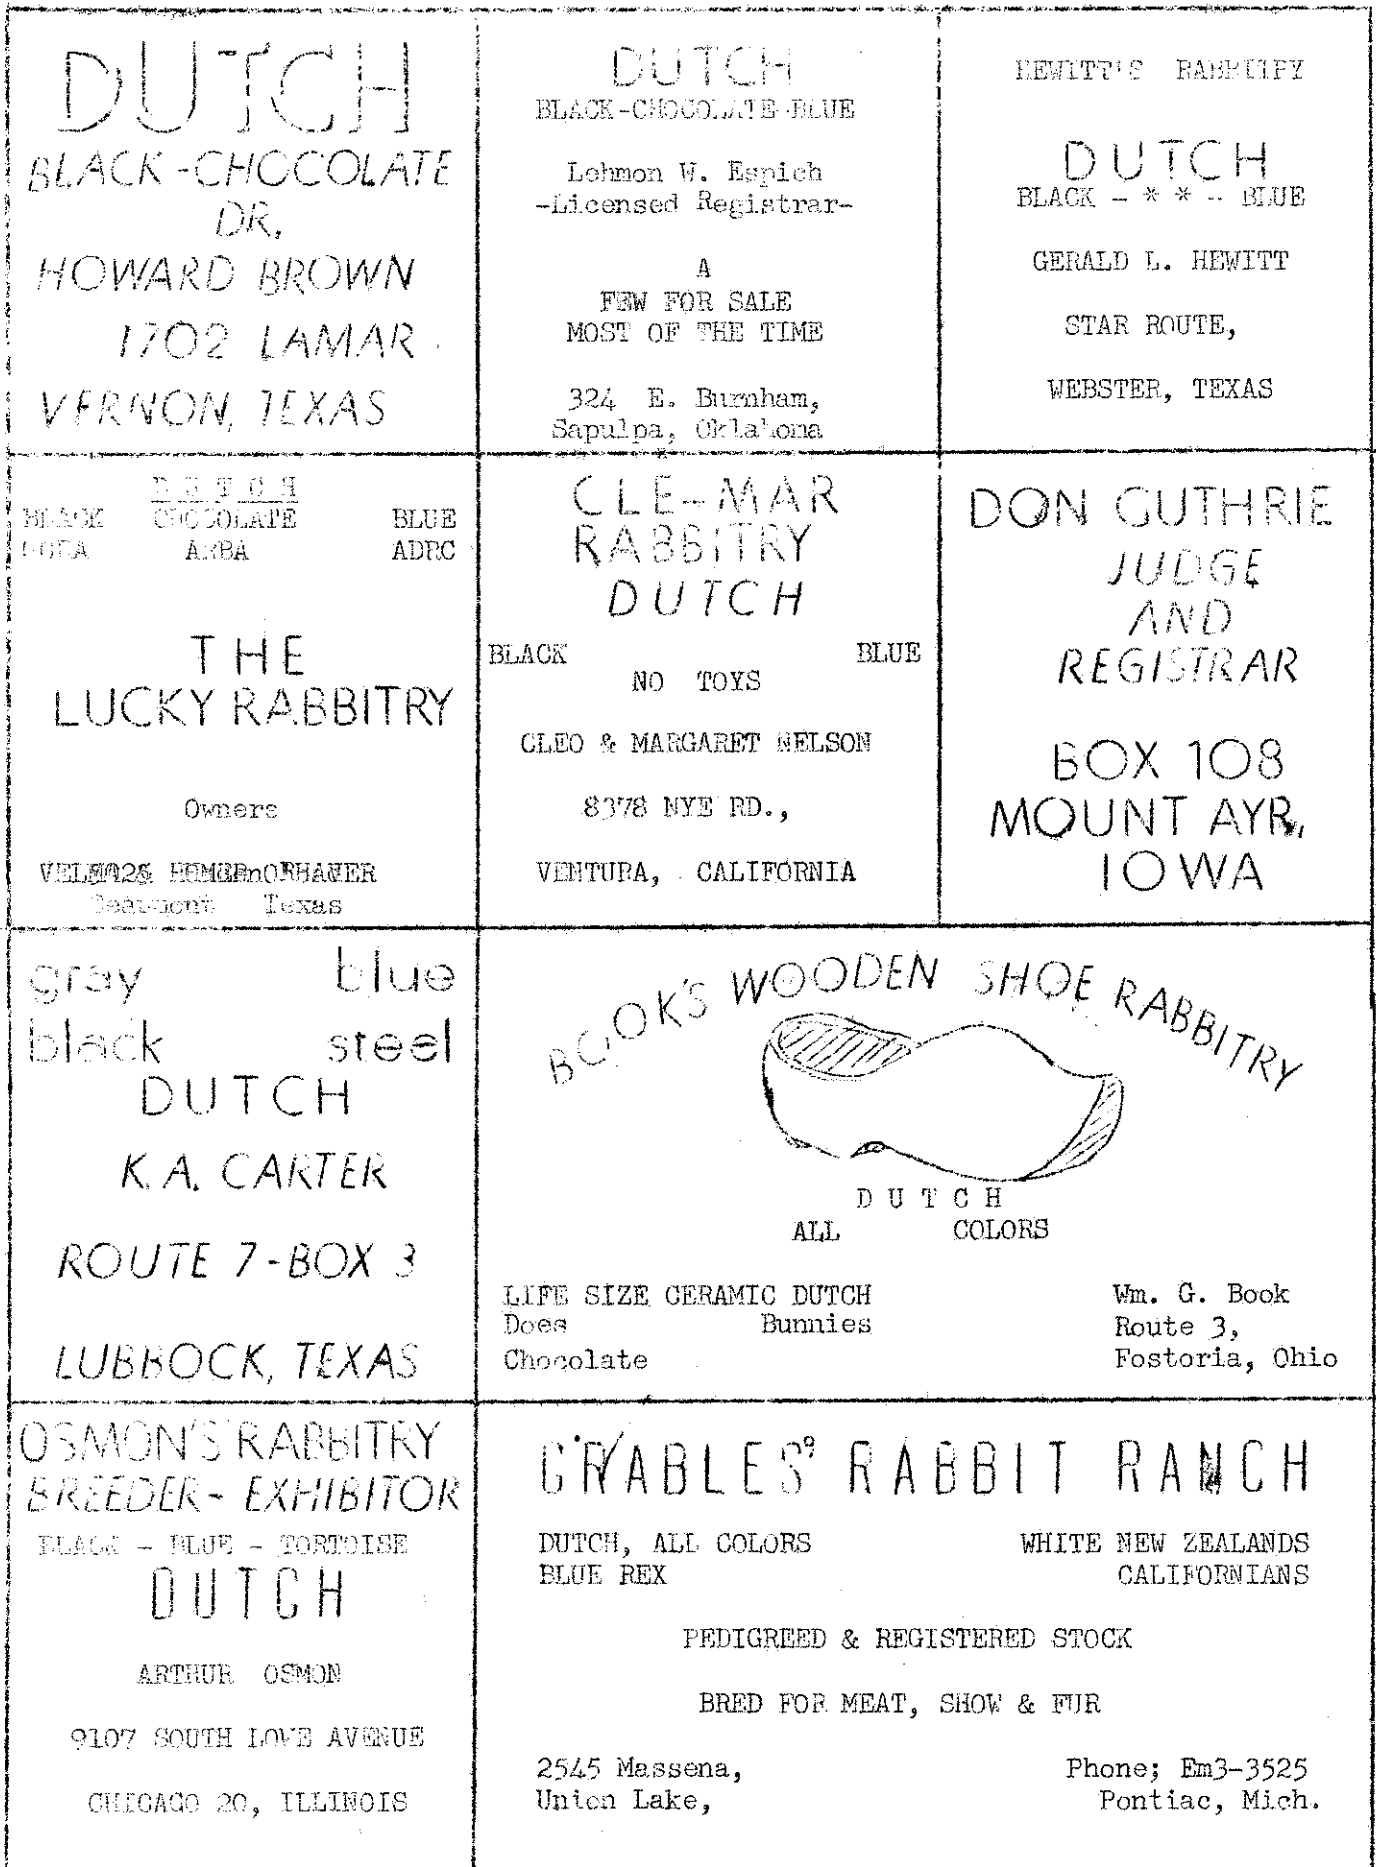 DUTCH
BLACK-CHOCOLATE
DR.
HOWARD BROWN
1702 LAMAR
VERNON, TEXAS
DUTCH
BLACK-CHOCOLATE-BLUE
Lohmon W. Espich
-Licensed Registrar-
A
FEW FOR SALE
MOST OF THE TIME
324 E. Burnham,
Sapulpa, Oklahoma
HEWITT'S RABBITRY
DUTCH
BLACK - * * - BLUE
GERALD L. HEWITT
STAR ROUTE,
WEBSTER, TEXAS
DUTCH
BLACK CHOCOLATE BLUE
ARBA ADRC
THE
LUCKY RABBITRY
Owners
Beaumont Texas
CLE-MAR
RABBITRY
DUTCH
BLACK BLUE
NO TOYS
CLEO & MARGARET NELSON
8378 NYE RD.,
VENTURA, CALIFORNIA
DON GUTHRIE
JUDGE
AND
REGISTRAR
BOX 108
MOUNT AYR,
IOWA
gray blue
black steel
DUTCH
K.A. CARTER
ROUTE 7-BOX 3
LUBBOCK, TEXAS
BOOK'S WOODEN SHOE RABBITRY
DUTCH
ALL COLORS
LIFE SIZE CERAMIC DUTCH
Does Bunnies
Chocolate
Wm. G. Book
Route 3,
Fostoria, Ohio
OSMON'S RABBITRY
BREEDER- EXHIBITOR
BLACK - BLUE - TORTOISE
DUTCH
ARTHUR OSMON
9107 SOUTH LOVE AVENUE
CHICAGO 20, ILLINOIS
GRABLES' RABBIT RANCH
DUTCH, ALL COLORS WHITE NEW ZEALANDS
BLUE REX CALIFORNIANS
PEDIGREED & REGISTERED STOCK
BRED FOR MEAT, SHOW & FUR
2545 Massena, Phone; Em3-3525
Union Lake, Pontiac, Mich.